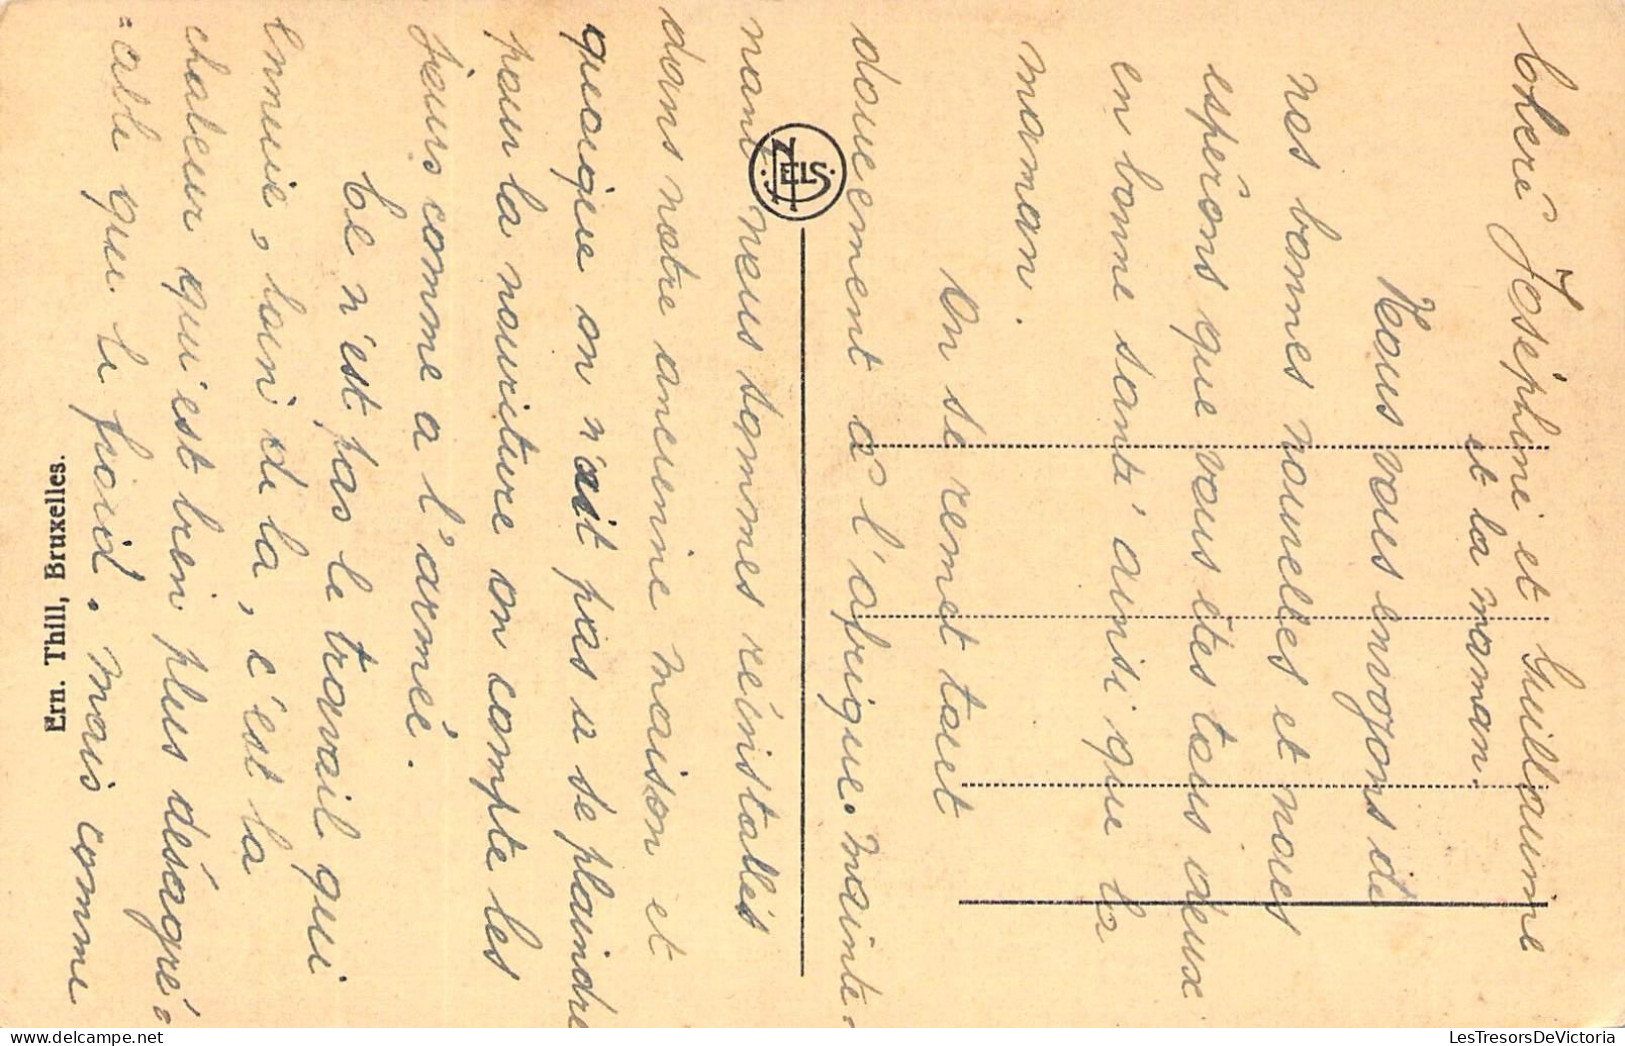 Cheré Joséphine et Guillaume
et la maman.
Nous vous envoyons de
nos bonnes nouvelles et nous
espérons que vous êtes tous deux
en bonne santé ainsi que la
maman.
On se remet tout
doucement à l'afrique. mainte-
nant nous sommes réinstallés
dans notre ancienne maison et
quoique on n'ait pas a se plaindre
pour la nouriture on compte les
jours comme a l'armée.
Ce n'est pas le travail qui
ennuie, loin de la, c'est la
chaleur qui est bien plus désagré=
=able que le froid. mais comme
NELS
Ern. Thill, Bruxelles.
LesTresorsDeVictoria